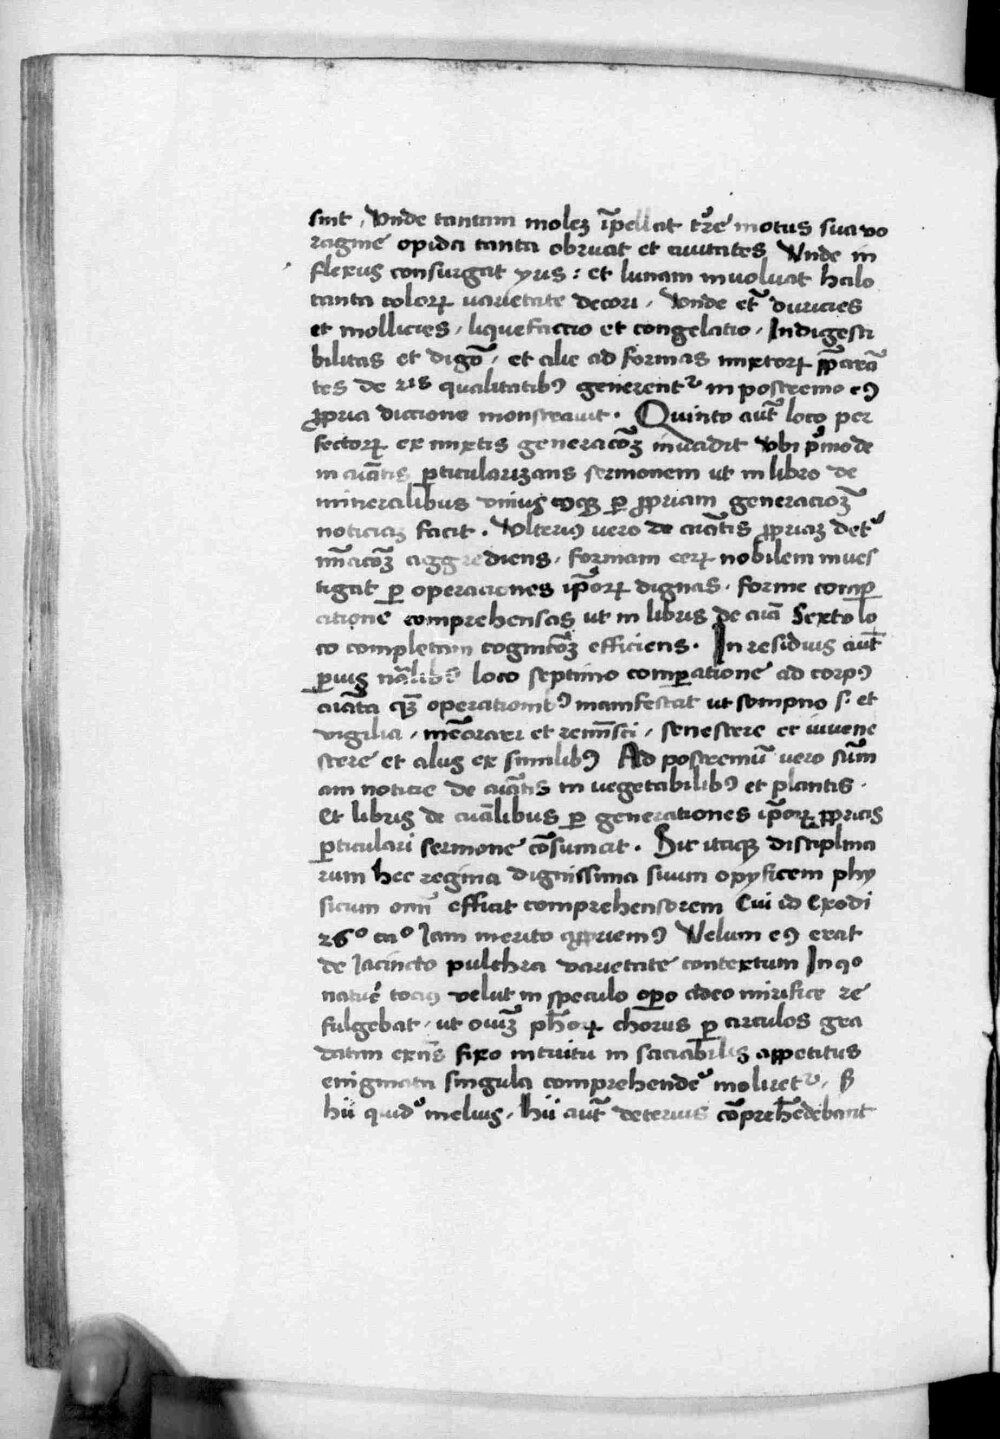 sint, Vnde tantam molez īpellat tr̄e motus sua vo
ragine opida tanta obruat et ciuitates Vnde in
flexus consurgat yris : et lunam inuoluat halo
tanta colorꝝ varietate decori, Vnde et̄ duricies
et mollicies, liquefaccio et congelatio, Indigesti
bilitas et digō, et alie ad formas mixtorꝝ
tes de qualitatibꝯ generentᷣ in postremo eꝯ
ꝓpria diccione monstrauit. Quinto aut̄ loco per
fectorꝝ ex mixtis generacōꝫ inuadit vbi pͥmo de
in aīatis ꝑticularizans sermonem ut in libro de
mineralibus vniuscꝯqꝫ ꝑ ꝓpriam generacioꝫ
noticiaꝫ facit. Vlteriꝯ vero de aīatis ꝓpriaꝫ det
mīacōꝫ aggrediens, formam eorꝝ nobilem inues
tigat ꝑ operaciones ip̄orꝝ dignas, forme comꝑ
atione comprehensas ut in libris de aīa Sexto lo
co completam cognicōꝫ efficiens. In residuis aut̄
ꝑuis nāalibꝯ loco septimo comꝑatione ad corpꝯ
aīata qꝫ operationibꝯ manifestat ut sompno s. et
vigilia, memōrari et remīsci, senescere et iuuene
scere et alijs ex similibꝯ Ad postremū vero sūm
am noticie de aīatis in vegetabilibꝯ et plantis.
Et libris de aīalibus ꝑ generationes ip̄orꝝ ꝓprias
ꝑticulari sermone cōsumat. Sic itaqꝫ disciplina
rum hec regina dignissima suum opyficem phy
sicum om̄ efficit comprehensorem Cui id Exodi
26º caº Iam merito Velum eꝯ erat
de Iacincto pulchra varietate contextum In qo
nature tociꝯ velut in speculo adeo mirifice re
fulgebat, ut ph̄orꝝ chorus ꝑ circulos gra
datim exn̄s fixo intuitu insaciabilis appetitus
enigmata singula comprehendeᷣ moliretᷣ, S
hii quidᷣ melius, hii aut̄ deterius cōpreh̄edebant